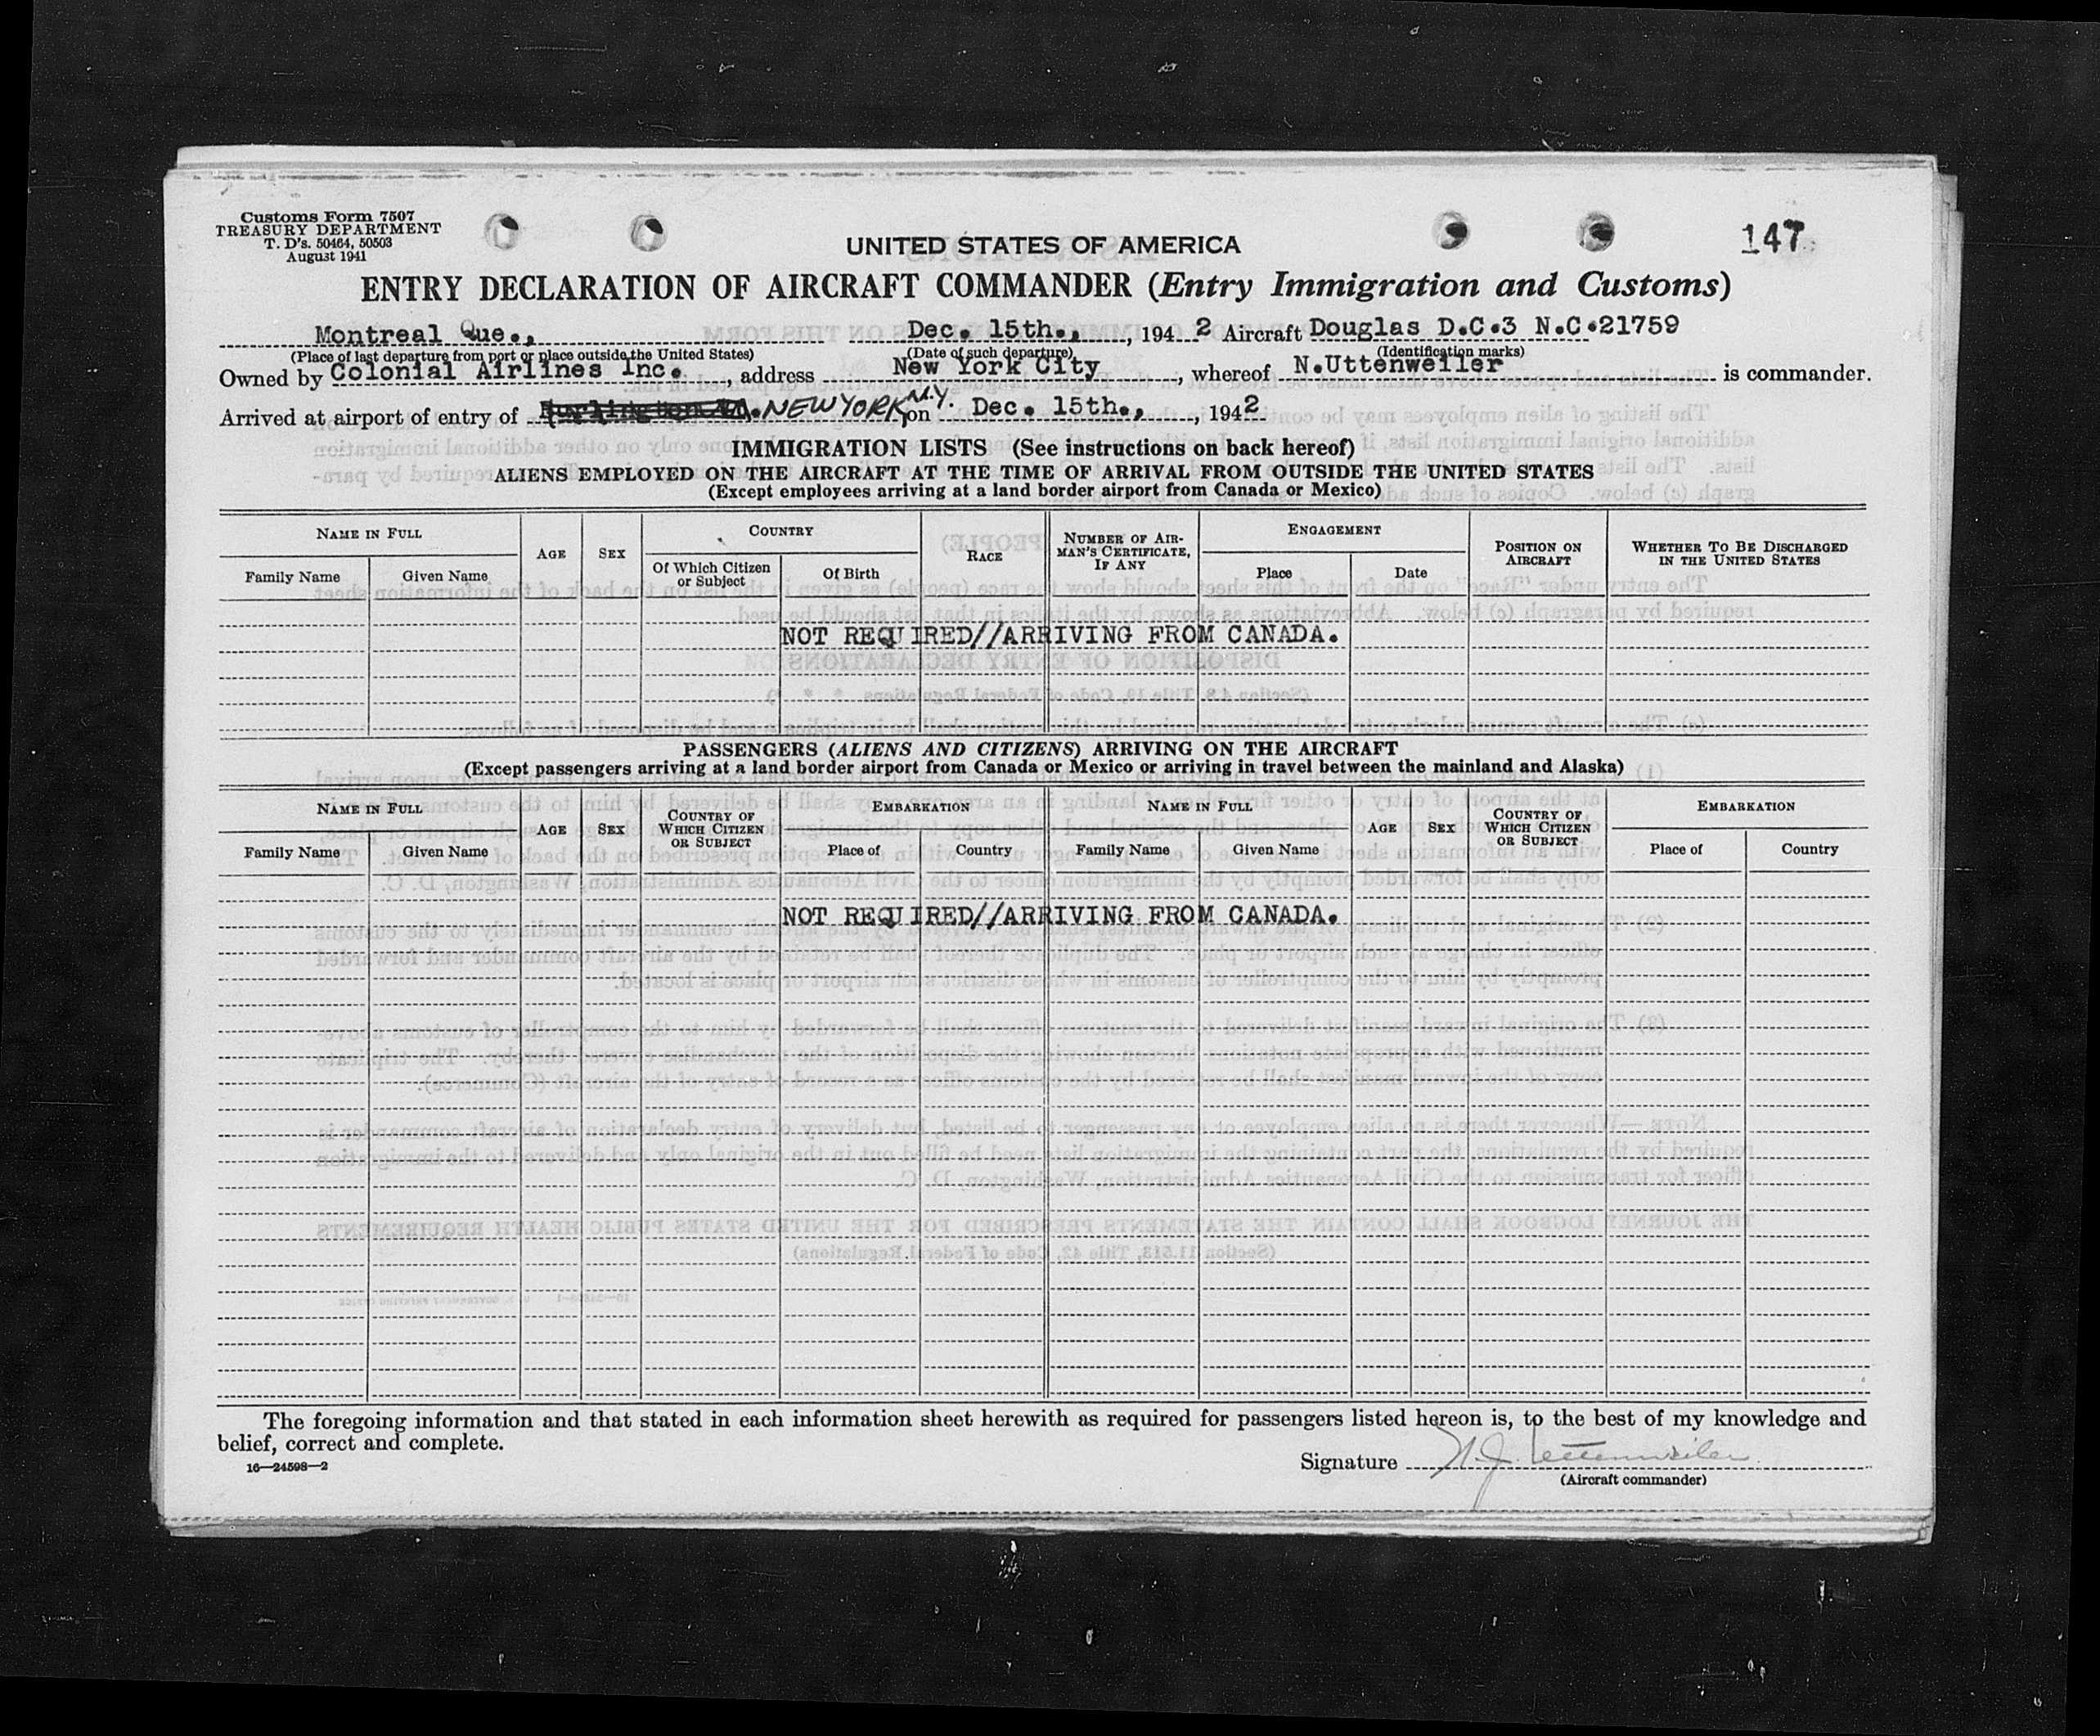 Customs Form 7507
TREASURY DEPARTMENT
T. D's. 50464, 50503
August 1941
147
UNITED STATES OF AMERICA
ENTRY DECLARATION OF AIRCRAFT COMMANDER (Entry Immigration and Customs)
Montreal Que., Dec. 15th., , 194 2 Aircraft Douglas D.C.3 N.C.21759
(Place of last departure from port or place outside the United States) (Date of such departure) (Identification marks)
Owned by Colonial Airlines Inc. , address New York City , whereof N.Uttenweiler is commander.
Arrived at airport of entry of NEW YORK, N.Y. on Dec. 15th., , 1942
IMMIGRATION LISTS (See instructions on back hereof)
ALIENS EMPLOYED ON THE AIRCRAFT AT THE TIME OF ARRIVAL FROM OUTSIDE THE UNITED STATES
(Except employees arriving at a land border airport from Canada or Mexico)
NAME IN FULL AGE SEX COUNTRY RACE NUMBER OF AIRMAN'S CERTIFICATE, IF ANY ENGAGEMENT POSITION ON AIRCRAFT WHETHER TO BE DISCHARGED IN THE UNITED STATES
Family Name Given Name Of Which Citizen or Subject Of Birth Place Date
NOT REQUIRED//ARRIVING FROM CANADA.
PASSENGERS (ALIENS AND CITIZENS) ARRIVING ON THE AIRCRAFT
(Except passengers arriving at a land border airport from Canada or Mexico or arriving in travel between the mainland and Alaska)
NAME IN FULL AGE SEX COUNTRY OF WHICH CITIZEN OR SUBJECT EMBARKATION NAME IN FULL AGE SEX COUNTRY OF WHICH CITIZEN OR SUBJECT EMBARKATION
Family Name Given Name Place of Country Family Name Given Name Place of Country
NOT REQUIRED//ARRIVING FROM CANADA.
The foregoing information and that stated in each information sheet herewith as required for passengers listed hereon is, to the best of my knowledge and
belief, correct and complete.
16—24598—2
Signature N.J. Uttenweiler
(Aircraft commander)